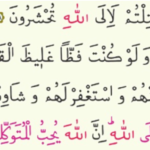 تِلْتُمْ لَاِلَى اللّٰهِ تُحْشَرُونَ
وَلَوْ كُنْتَ فَظًّا غَلِيظَ الْقَ
هُمْ وَاسْتَغْفِرْ لَهُمْ وَشَاوِ
لَى اللّٰهِ اِنَّ اللّٰهَ يُحِبُّ الْمُتَوَكِّل